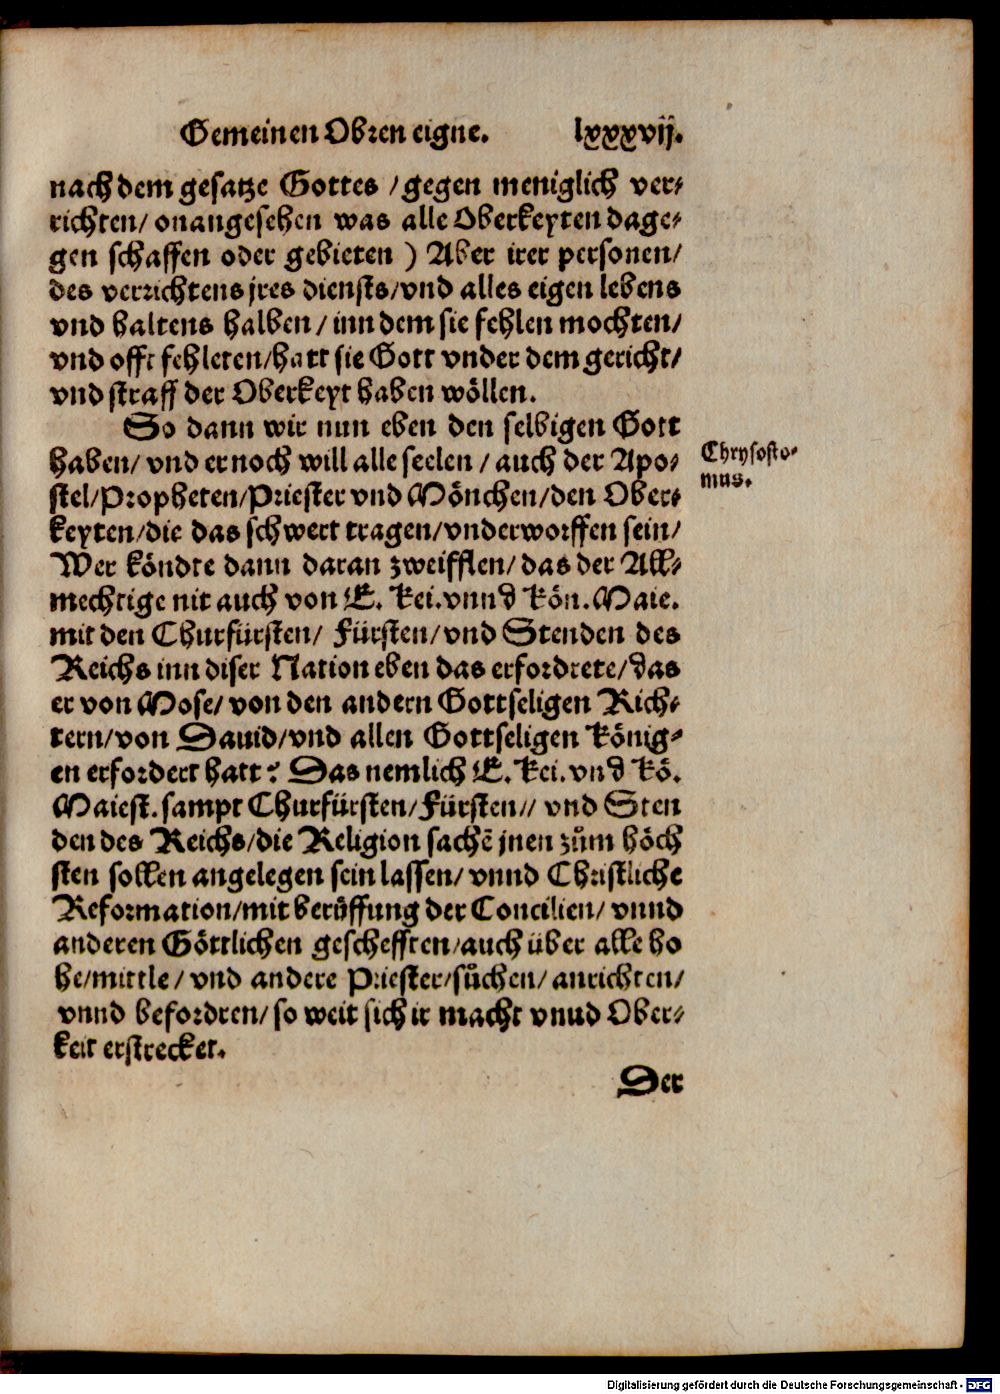 Gemeinen Obren eigne. lxxxvij.
nach dem gesatze Gottes / gegen meniglich ver-
richten/ onangesehen was alle Oberkeyten dage-
gen schaffen oder gebieten ) Aber irer personen/
des verrichtens jres diensts/vnd alles eigen lebens
vnd haltens halben / inn dem sie fehlen mochten/
vnd offt fehleten/hatt sie Gott vnder dem gericht/
vnd straff der Oberkeyt haben wöllen.
So dann wir nun eben den selbigen Gott
haben/ vnd er noch will alle seelen / auch der Apo-
stel/Propheten/Priester vnd Mönchen/den Ober-
keyten/die das schwert tragen/vnderworffen sein/
Wer köndte dann daran zweifflen/ das der All-
mechtige nit auch von E. kei.vnnd kön.Maie.
mit den Churfürsten/ Fürsten/vnd Stenden des
Reichs inn diser Nation eben das erfordrete/das
er von Mose/ von den andern Gottseligen Rich-
tern/von Dauid/vnd allen Gottseligen König-
en erfordert hatt? Das nemlich E. kei.vnd kö.
Maiest.sampt Churfürsten/Fürsten// vnd Sten
den des Reichs/die Religion sachē jnen zům höch
sten sollen angelegen sein lassen/ vnnd Christliche
Reformation/mit berůffung der Concilien/ vnnd
anderen Göttlichen gescheffren/auch über alle ho
he/mittle / vnd andere Priester/sůchen/ anrichten/
vnnd befordren/ so weit sich ir macht vnud Ober-
keit erstrecket.
Der
Chrysosto-
mus.
Digitalisierung gefördert durch die Deutsche Forschungsgemeinschaft - DFG